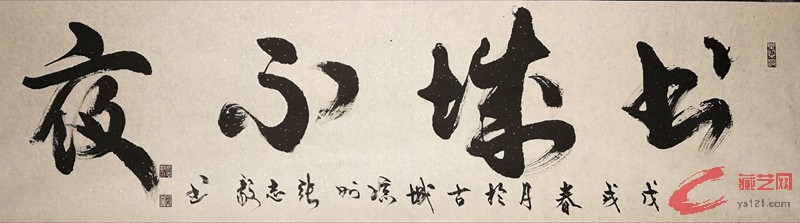 书城不夜
戊戌春月於古城琼州张志毅书
藏艺网
ys121.com